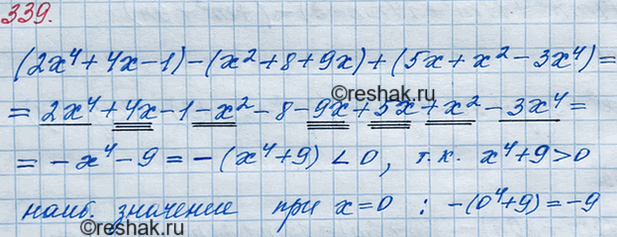 339.
(2x⁴+4x-1)-(x²+8+9x)+(5x+x²-3x⁴)=
=2x⁴+4x-1-x²-8-9x+5x+x²-3x⁴=
=-x⁴-9=-(x⁴+9)<0, т.к. x⁴+9>0
наиб. значение при x=0 : -(0⁴+9)=-9
©reshak.ru
©reshak.ru
©reshak.ru